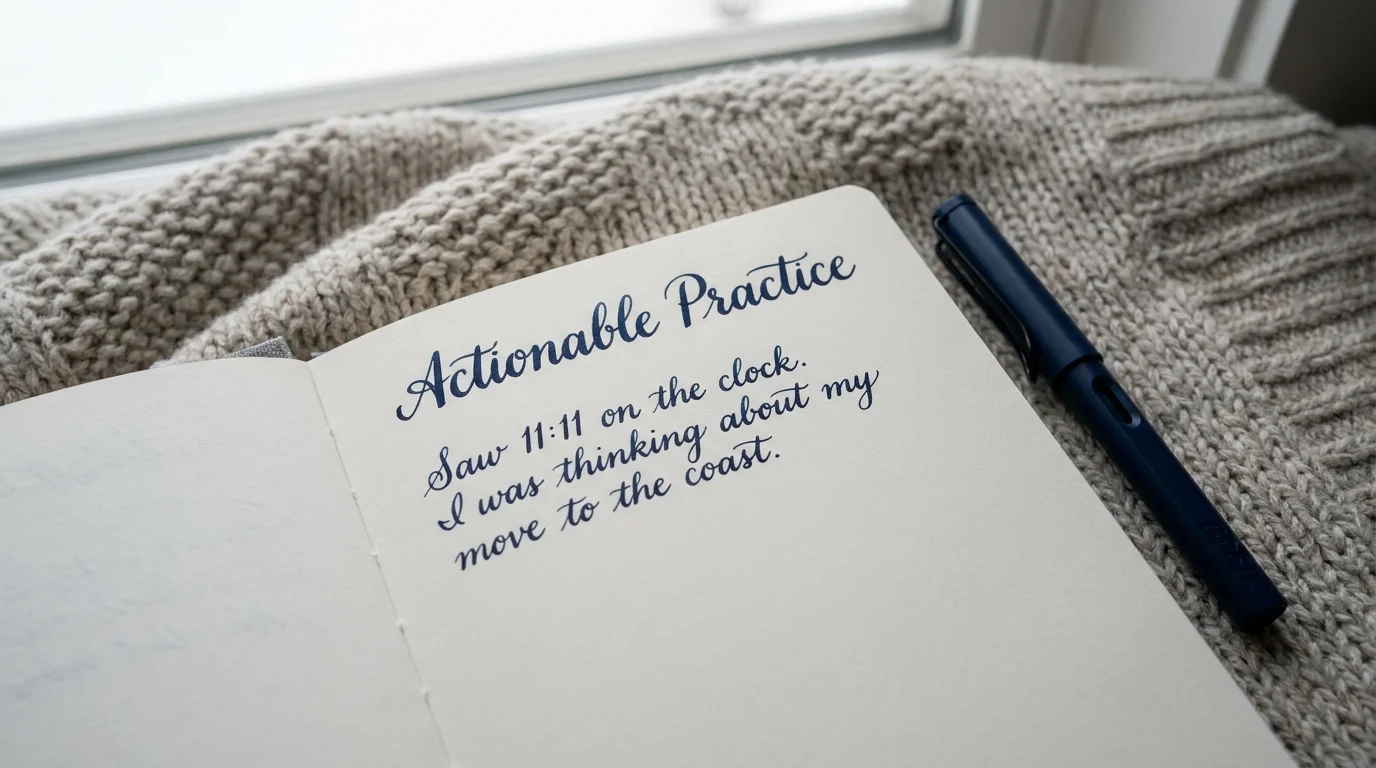 Actionable Practice
Saw 11:11 on the clock.
I was thinking about my
move to the coast.